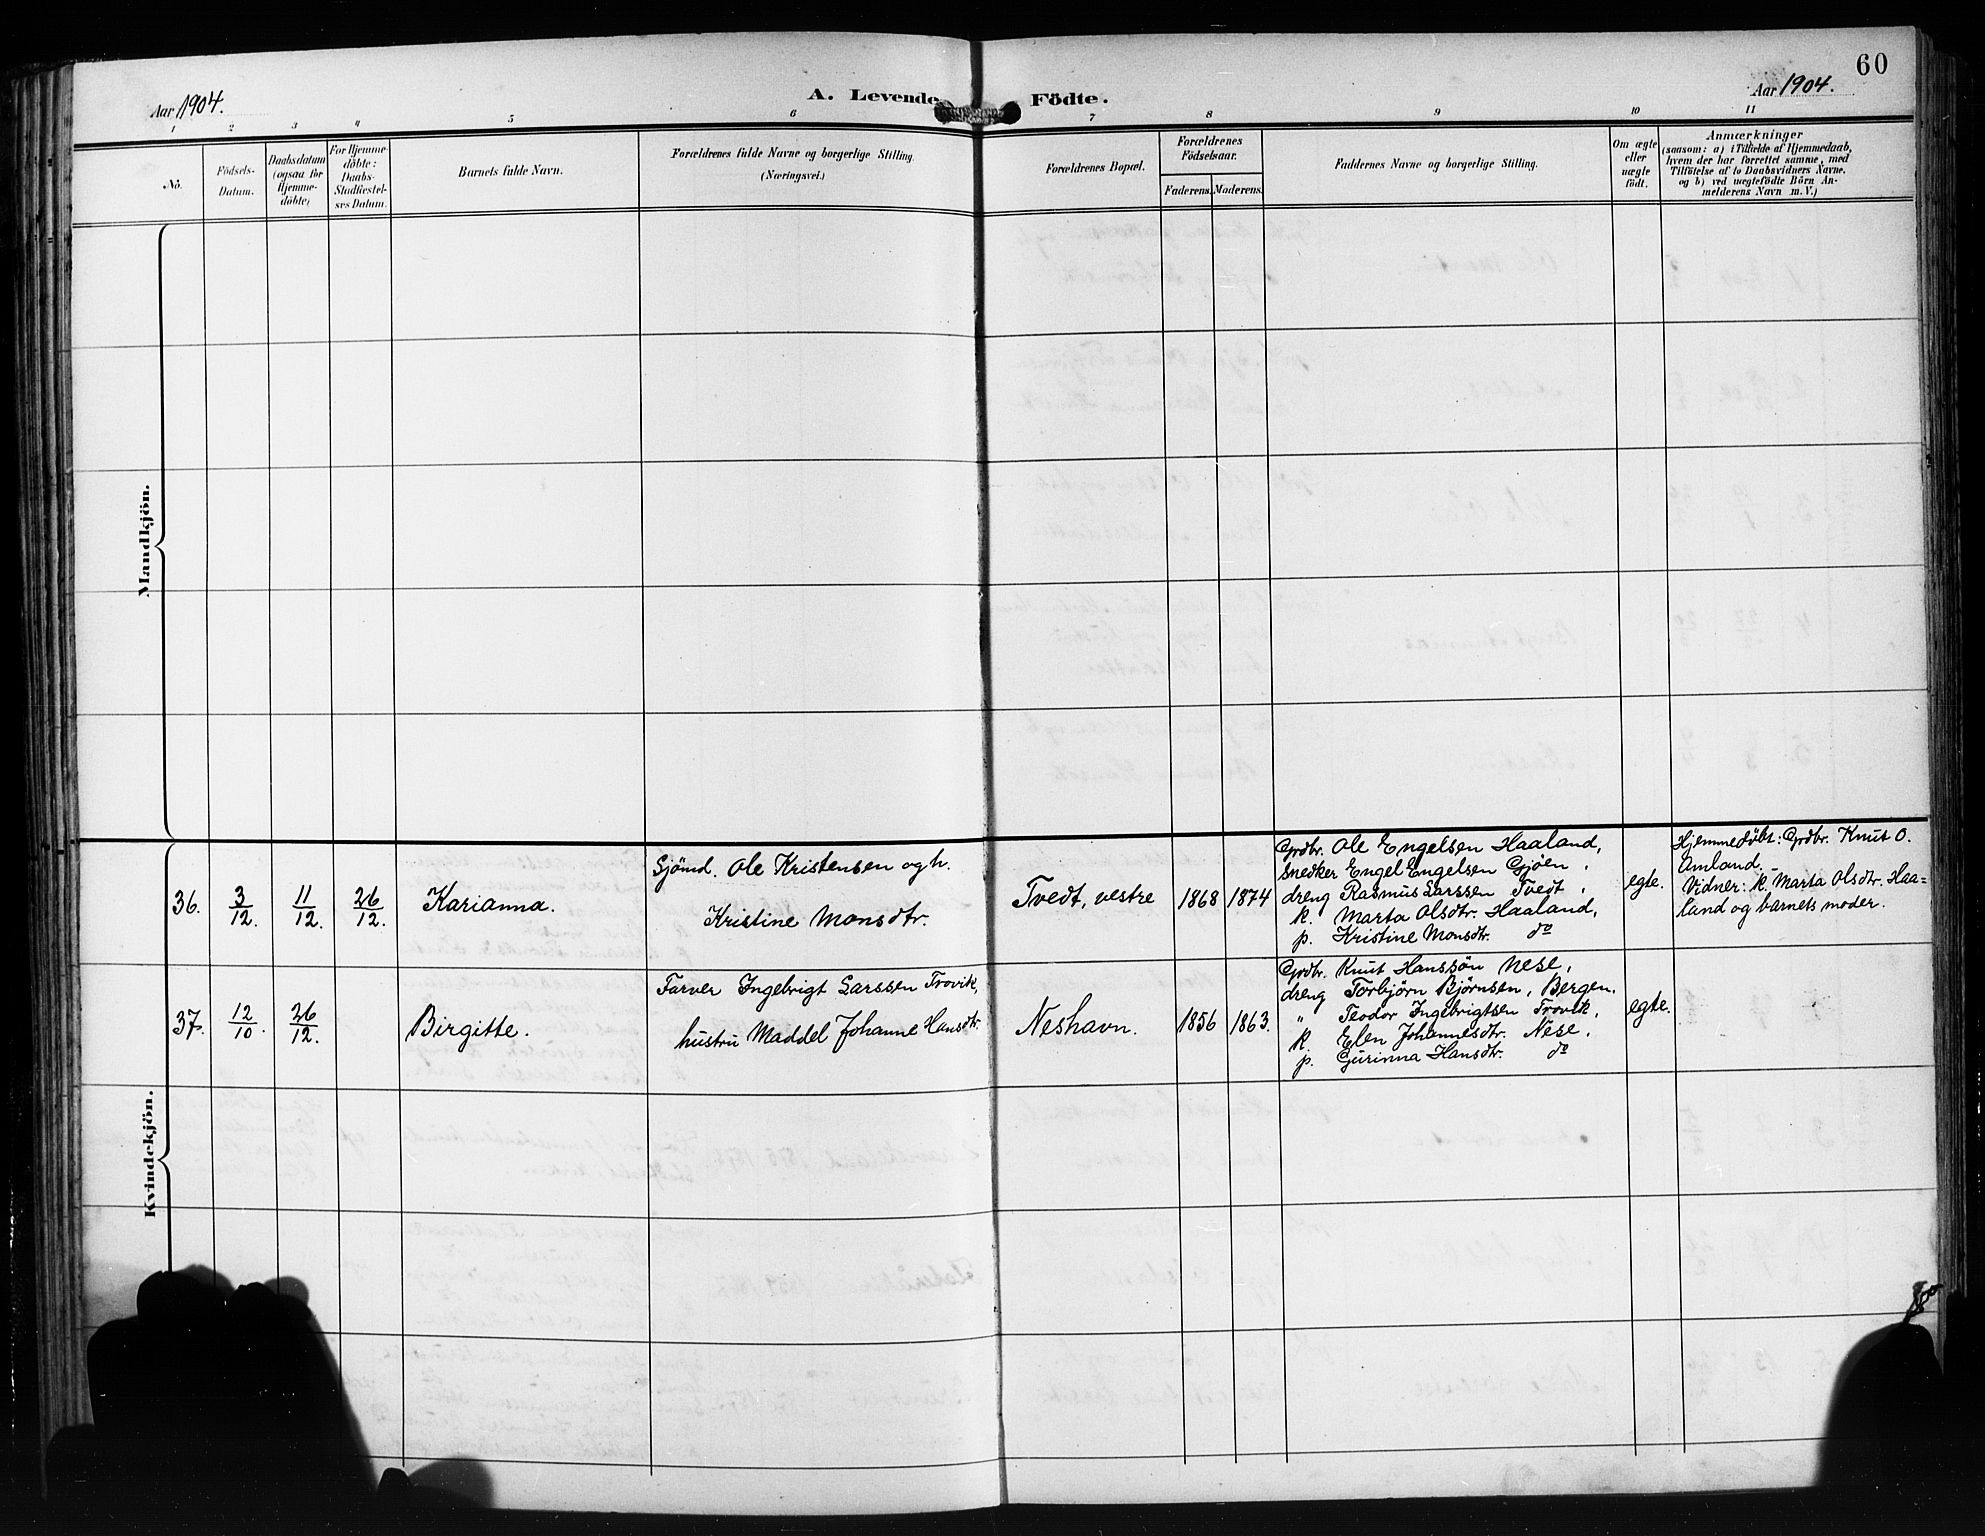 60
Aar 1904.
A. Levende Födte.
Aar 1904.
1 2 3 4 5 6 7 8 9 10 11
No.
Födsels-
Datum.
Daabsdatum
(ogsaa for
Hjemme-
döbte)
For Hjemme-
döbte:
Daabs-
Stadfæstel-
ses Datum.
Barnets fulde Navn.
Forældrenes fulde Navne og borgerlige Stilling.
(Næringsvei.)
Forældrenes Bopæl.
Forældrenes
Födselsaar.
Faderens. Moderens.
Faddernes Navne og borgerlige Stilling.
Om ægte
eller
uægte
födt.
Anmærkninger
(saasom: a) i Tilfælde af Hjemmedaab,
hvem der har forrettet samme, med
Tilföielse af to Daabsvidners Navne,
og b) ved uægtefödte Börn An-
melderens Navn m. V.)
Mandkjön.
Kvindekjön.
36.
3/12.
11/12.
26/12.
Karianna.
Sjömd. Ole Kristensen og h.
Kristine Monsdtr.
Tvedt, vestre
1868
1874
Grdbr. Ole Engelsen Haaland,
Snedker Engel Engelsen Gjöen,
dreng Rasmus Larssen Tvedt,
k. Marta Olsdtr. Haaland,
p. Kristine Monsdtr. do
egte.
Hjemmedöbt: Grdbr. Knut O.
Amland.
Vidner: k. Marta Olsdtr. Haa=
land og barnets moder.
37.
12/10.
26/12.
Birgitte.
Farver Ingebrigt Larssen Trovik,
hustru Maddel Johanne Hansdtr.
Neshavn.
1856
1863.
Grdbr. Knut Hanssön Nese,
dreng Torbjörn Björnsen, Bergen,
" Teodor Ingebrigtsen Trovik,
k. Elen Johannesdtr. Nese,
p. Gurinna Hansdtr. do
egte.